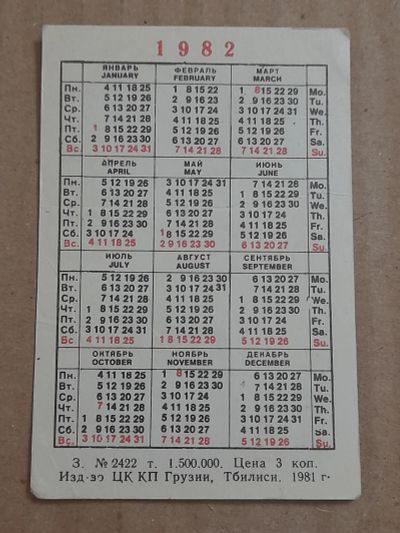 1982
ЯНВАРЬ ФЕВРАЛЬ МАРТ
JANUARY FEBRUARY MARCH
Пн. 4 11 18 25 1 8 15 22 1 8 15 22 29 Mo.
Вт. 5 12 19 26 2 9 16 23 2 9 16 23 30 Tu.
Ср. 6 13 20 27 3 10 17 24 3 10 17 24 31 We.
Чт. 7 14 21 28 4 11 18 25 4 11 18 25 Th.
Пт. 1 8 15 22 29 5 12 19 26 5 12 19 26 Fr.
Сб. 2 9 16 23 30 6 13 20 27 6 13 20 27 Sa.
Вс. 3 10 17 24 31 7 14 21 28 7 14 21 28 Su.
АПРЕЛЬ МАЙ ИЮНЬ
APRIL MAY JUNE
Пн. 5 12 19 26 3 10 17 24 31 7 14 21 28 Mo.
Вт. 6 13 20 27 4 11 18 25 1 8 15 22 29 Tu.
Ср. 7 14 21 28 5 12 19 26 2 9 16 23 30 We.
Чт. 1 8 15 22 29 6 13 20 27 3 10 17 24 Th.
Пт. 2 9 16 23 30 7 14 21 28 4 11 18 25 Fr.
Сб. 3 10 17 24 1 8 15 22 29 5 12 19 26 Sa.
Вс. 4 11 18 25 2 9 16 23 30 6 13 20 27 Su.
ИЮЛЬ АВГУСТ СЕНТЯБРЬ
JULY AUGUST SEPTEMBER
Пн. 5 12 19 26 2 9 16 23 30 6 13 20 27 Mo.
Вт. 6 13 20 27 3 10 17 24 31 7 14 21 28 Tu.
Ср. 7 14 21 28 4 11 18 25 1 8 15 22 29 We.
Чт. 1 8 15 22 29 5 12 19 26 2 9 16 23 30 Th.
Пт. 2 9 16 23 30 6 13 20 27 3 10 17 24 Fr.
Сб. 3 10 17 24 31 7 14 21 28 4 11 18 25 Sa.
Вс 4 11 18 25 1 8 15 22 29 5 12 19 26 Su.
ОКТЯБРЬ НОЯБРЬ ДЕКАБРЬ
OCTOBER NOVEMBER DECEMBER
Пн. 4 11 18 25 1 8 15 22 29 6 13 20 27 Mo.
Вт. 5 12 19 26 2 9 16 23 30 7 14 21 28 Tu.
Ср. 6 13 20 27 3 10 17 24 1 8 15 22 29 We.
Чт. 7 14 21 28 4 11 18 25 2 9 16 23 30 Th.
Пт. 1 8 15 22 29 5 12 19 26 3 10 17 24 31 Fr.
Сб. 2 9 16 23 30 6 13 20 27 4 11 18 25 Sa.
Вс. 3 10 17 24 31 7 14 21 28 5 12 19 26 Su.
З. № 2422 т. 1.500.000. Цена 3 коп.
Изд-во ЦК КП Грузии, Тбилиси. 1981 г.